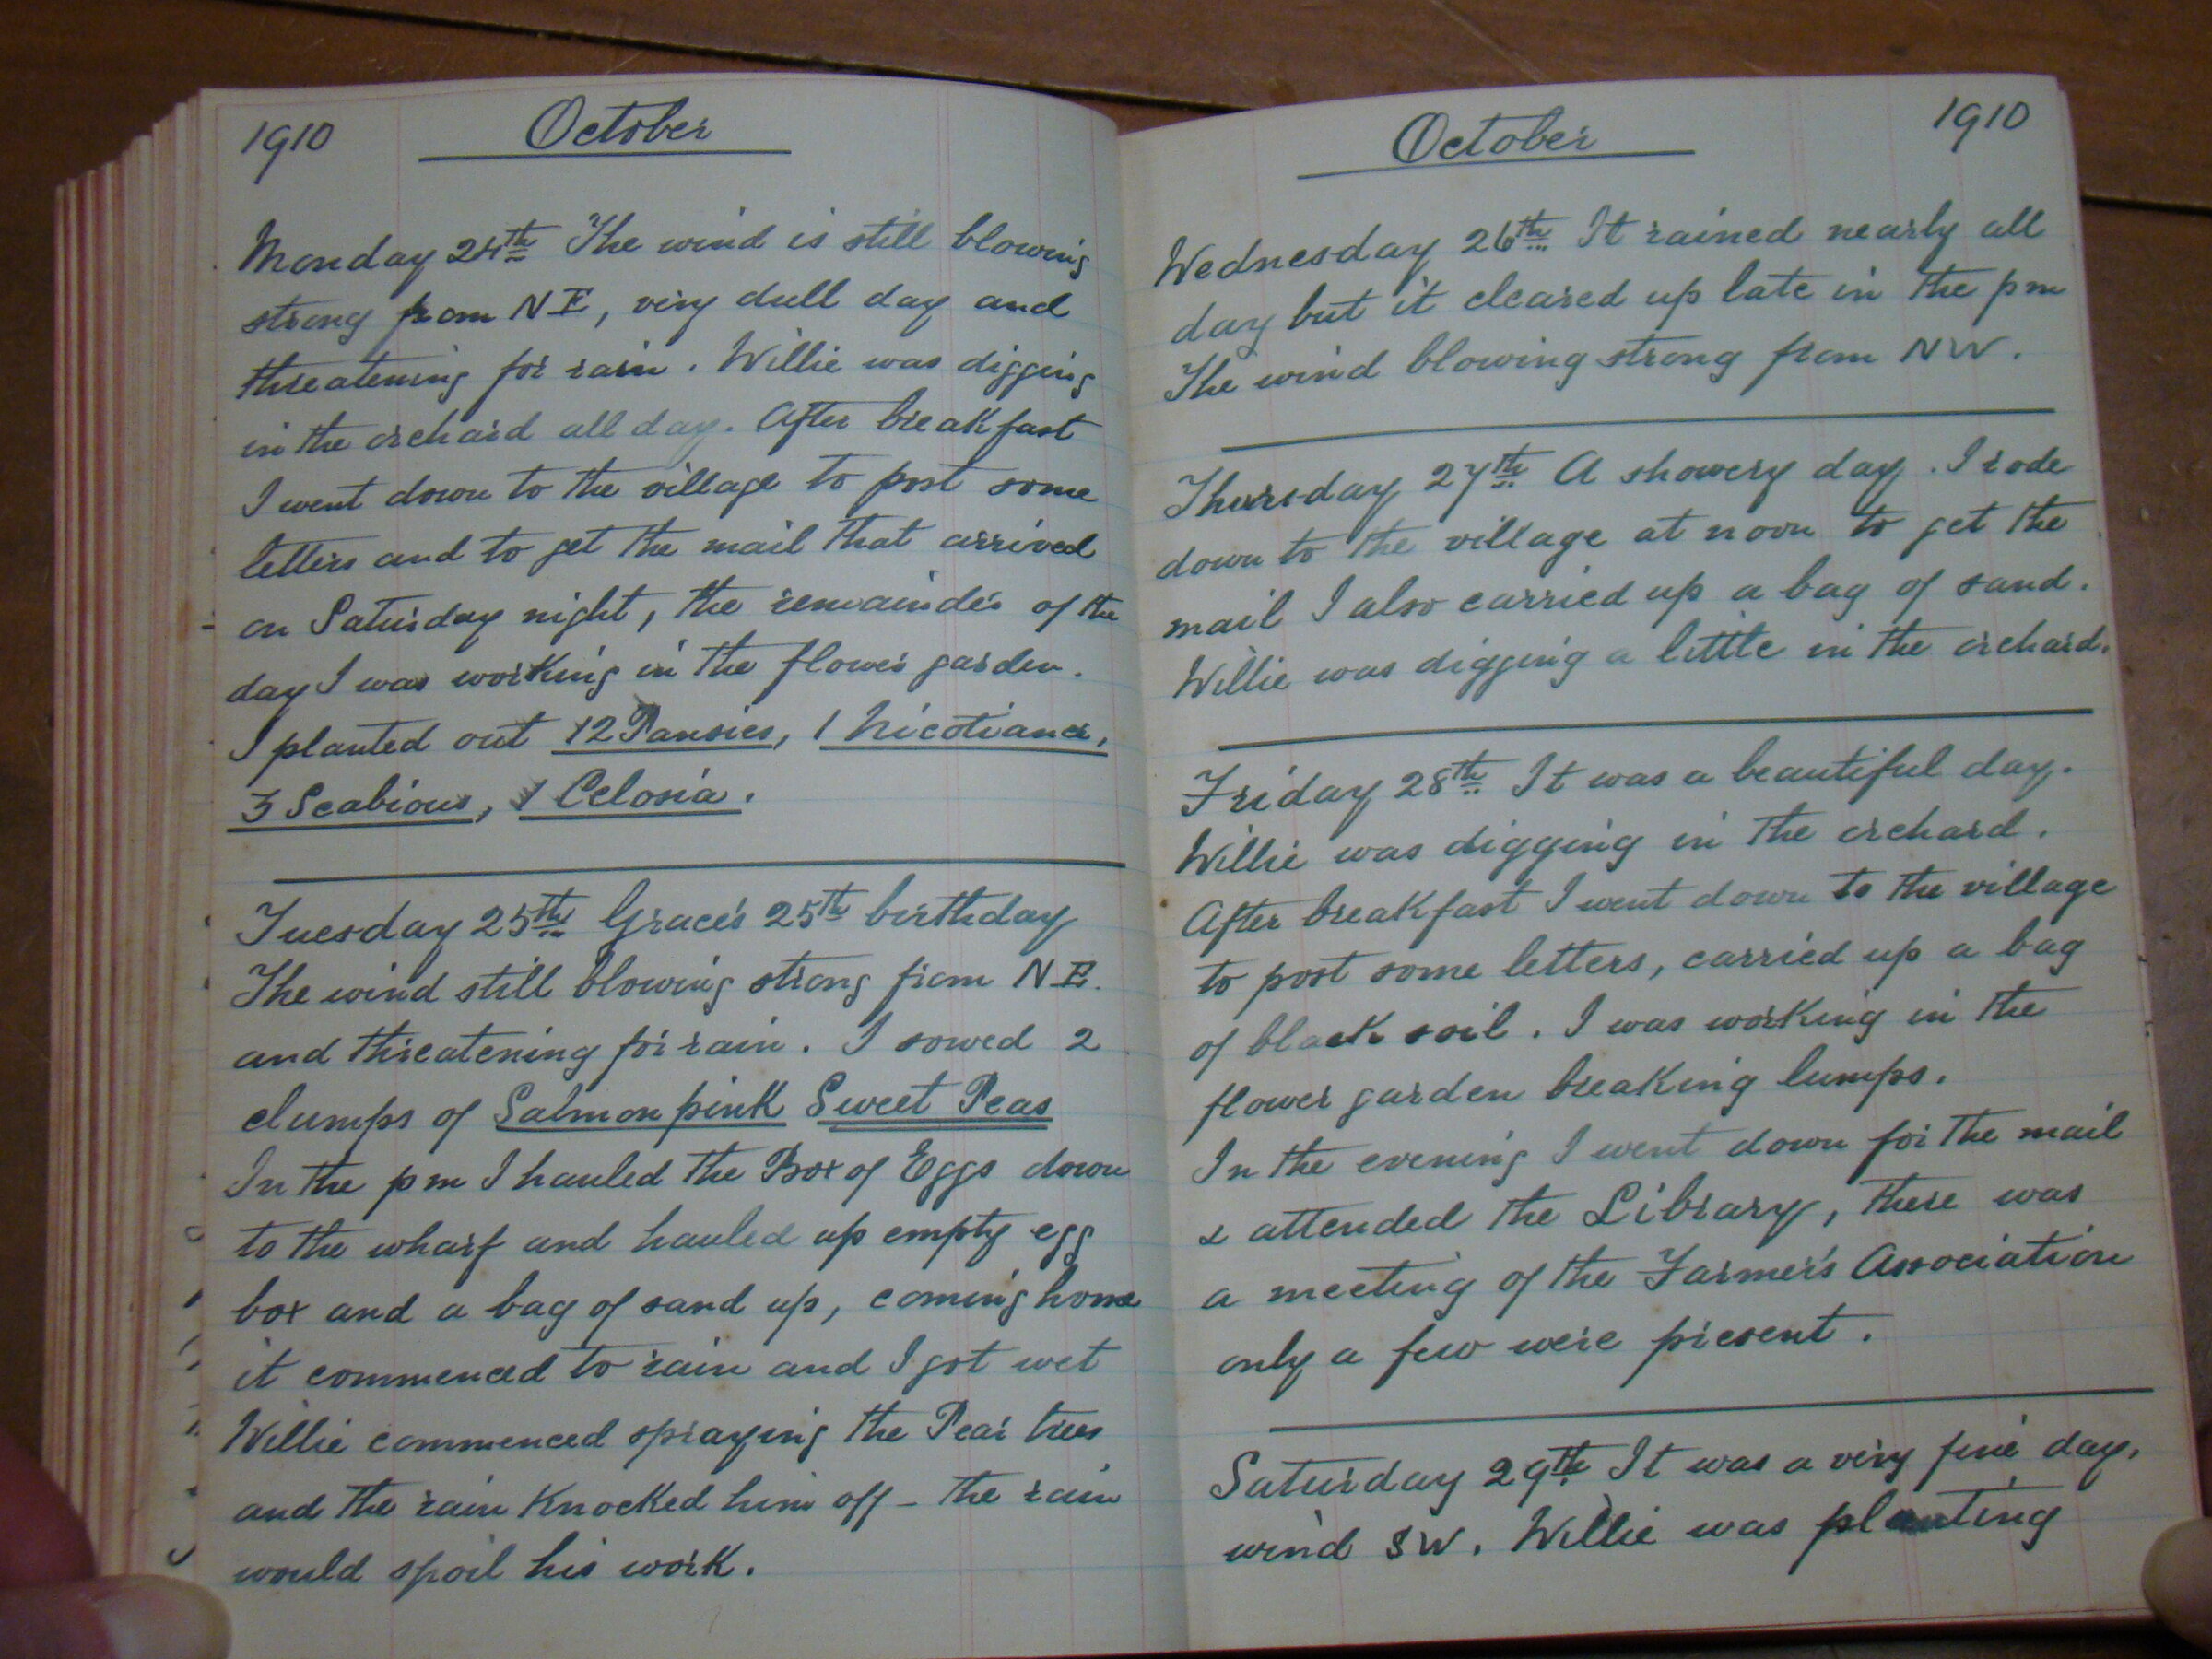 1910 October
Monday 24th The wind is still blowing
strong from NE, very dull day and
threatening for rain. Willie was digging
in the orchard all day. After breakfast
I went down to the village to post some
letters and to get the mail that arrived
on Saturday night, the remainder of the
day I was working in the flower garden.
I planted out 12 Pansies, 1 Nicotiana,
3 Scabious, 1 Celosia.
Tuesday 25th Grace's 25th birthday
The wind still blowing strong from NE.
and threatening for rain. I sowed 2
clumps of Salmon pink Sweet Peas
In the pm I hauled the Box of Eggs down
to the wharf and hauled up empty egg
box and a bag of sand up, coming home
it commenced to rain and I got wet
Willie commenced spraying the Pear trees
and the rain Knocked him off - the rain
would spoil his work.
October 1910
Wednesday 26th It rained nearly all
day but it cleared up late in the pm
The wind blowing strong from NW.
Thursday 27th A showery day. I rode
down to the village at noon to get the
mail I also carried up a bag of sand.
Willie was digging a little in the orchard.
Friday 28th It was a beautiful day.
Willie was digging in the orchard.
After breakfast I went down to the village
to post some letters, carried up a bag
of black soil. I was working in the
flower garden breaking lumps.
In the evening I went down for the mail
& attended the Library, there was
a meeting of the Farmer's Association
only a few were present.
Saturday 29th It was a very fine day,
wind SW. Willie was planting